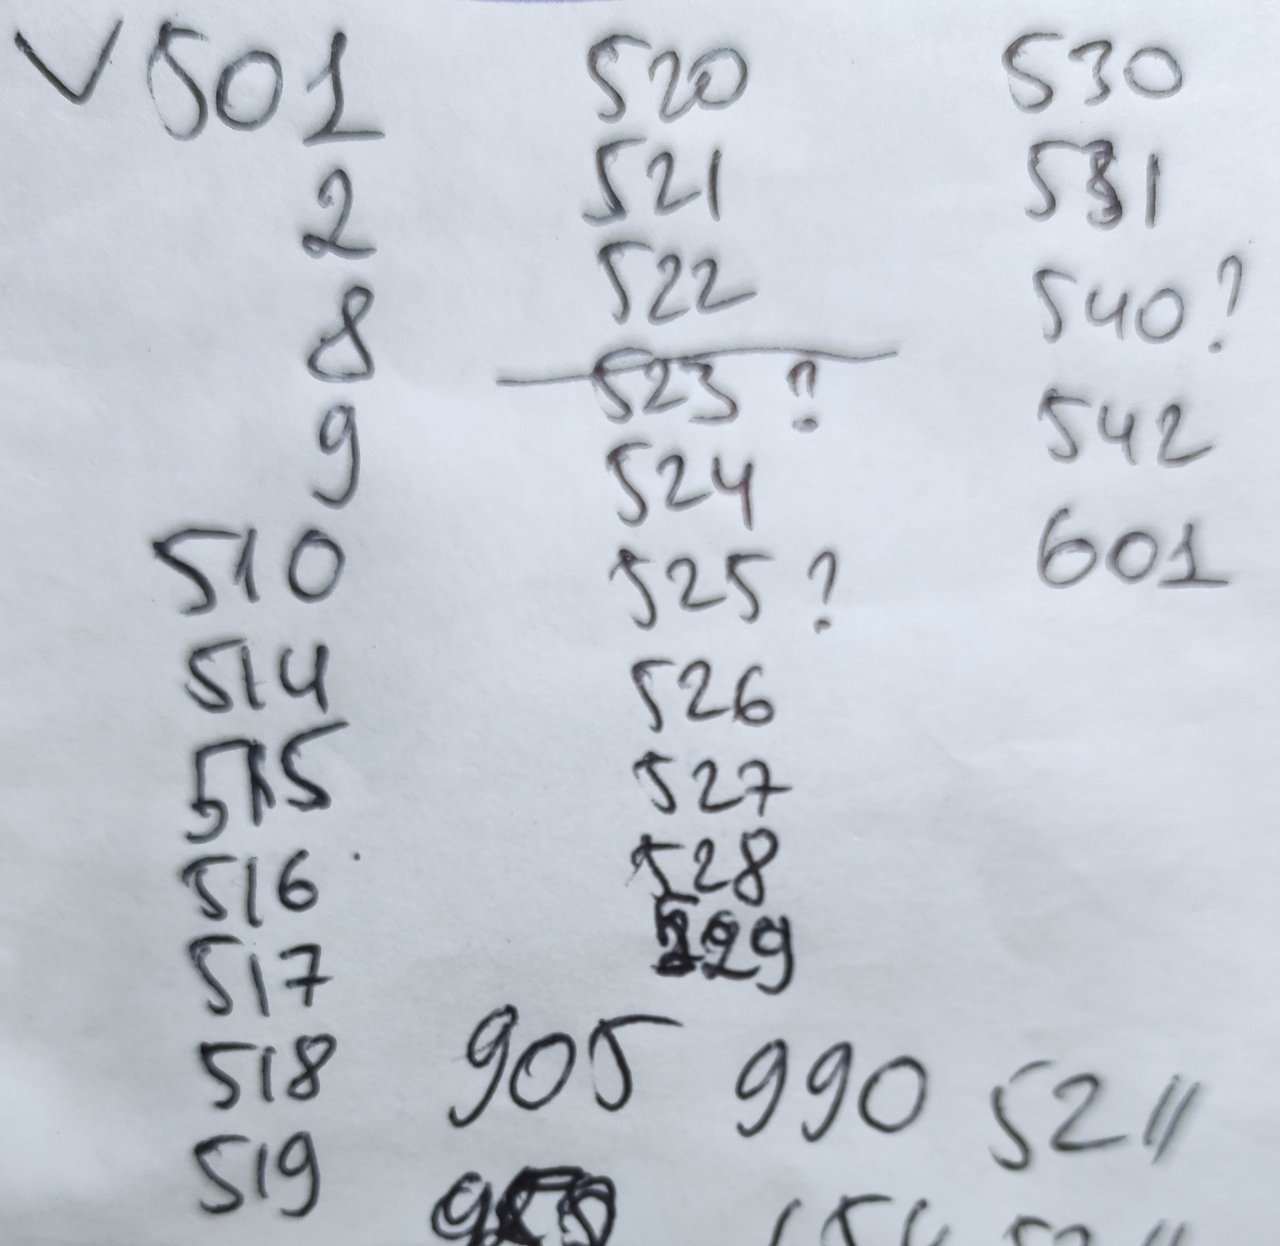 ✓501
2
8
9
510
514
515
516
517
518
519
520
521
522
523 ?
524
525 ?
526
527
528
529
530
531
540?
542
601
905 990 5211